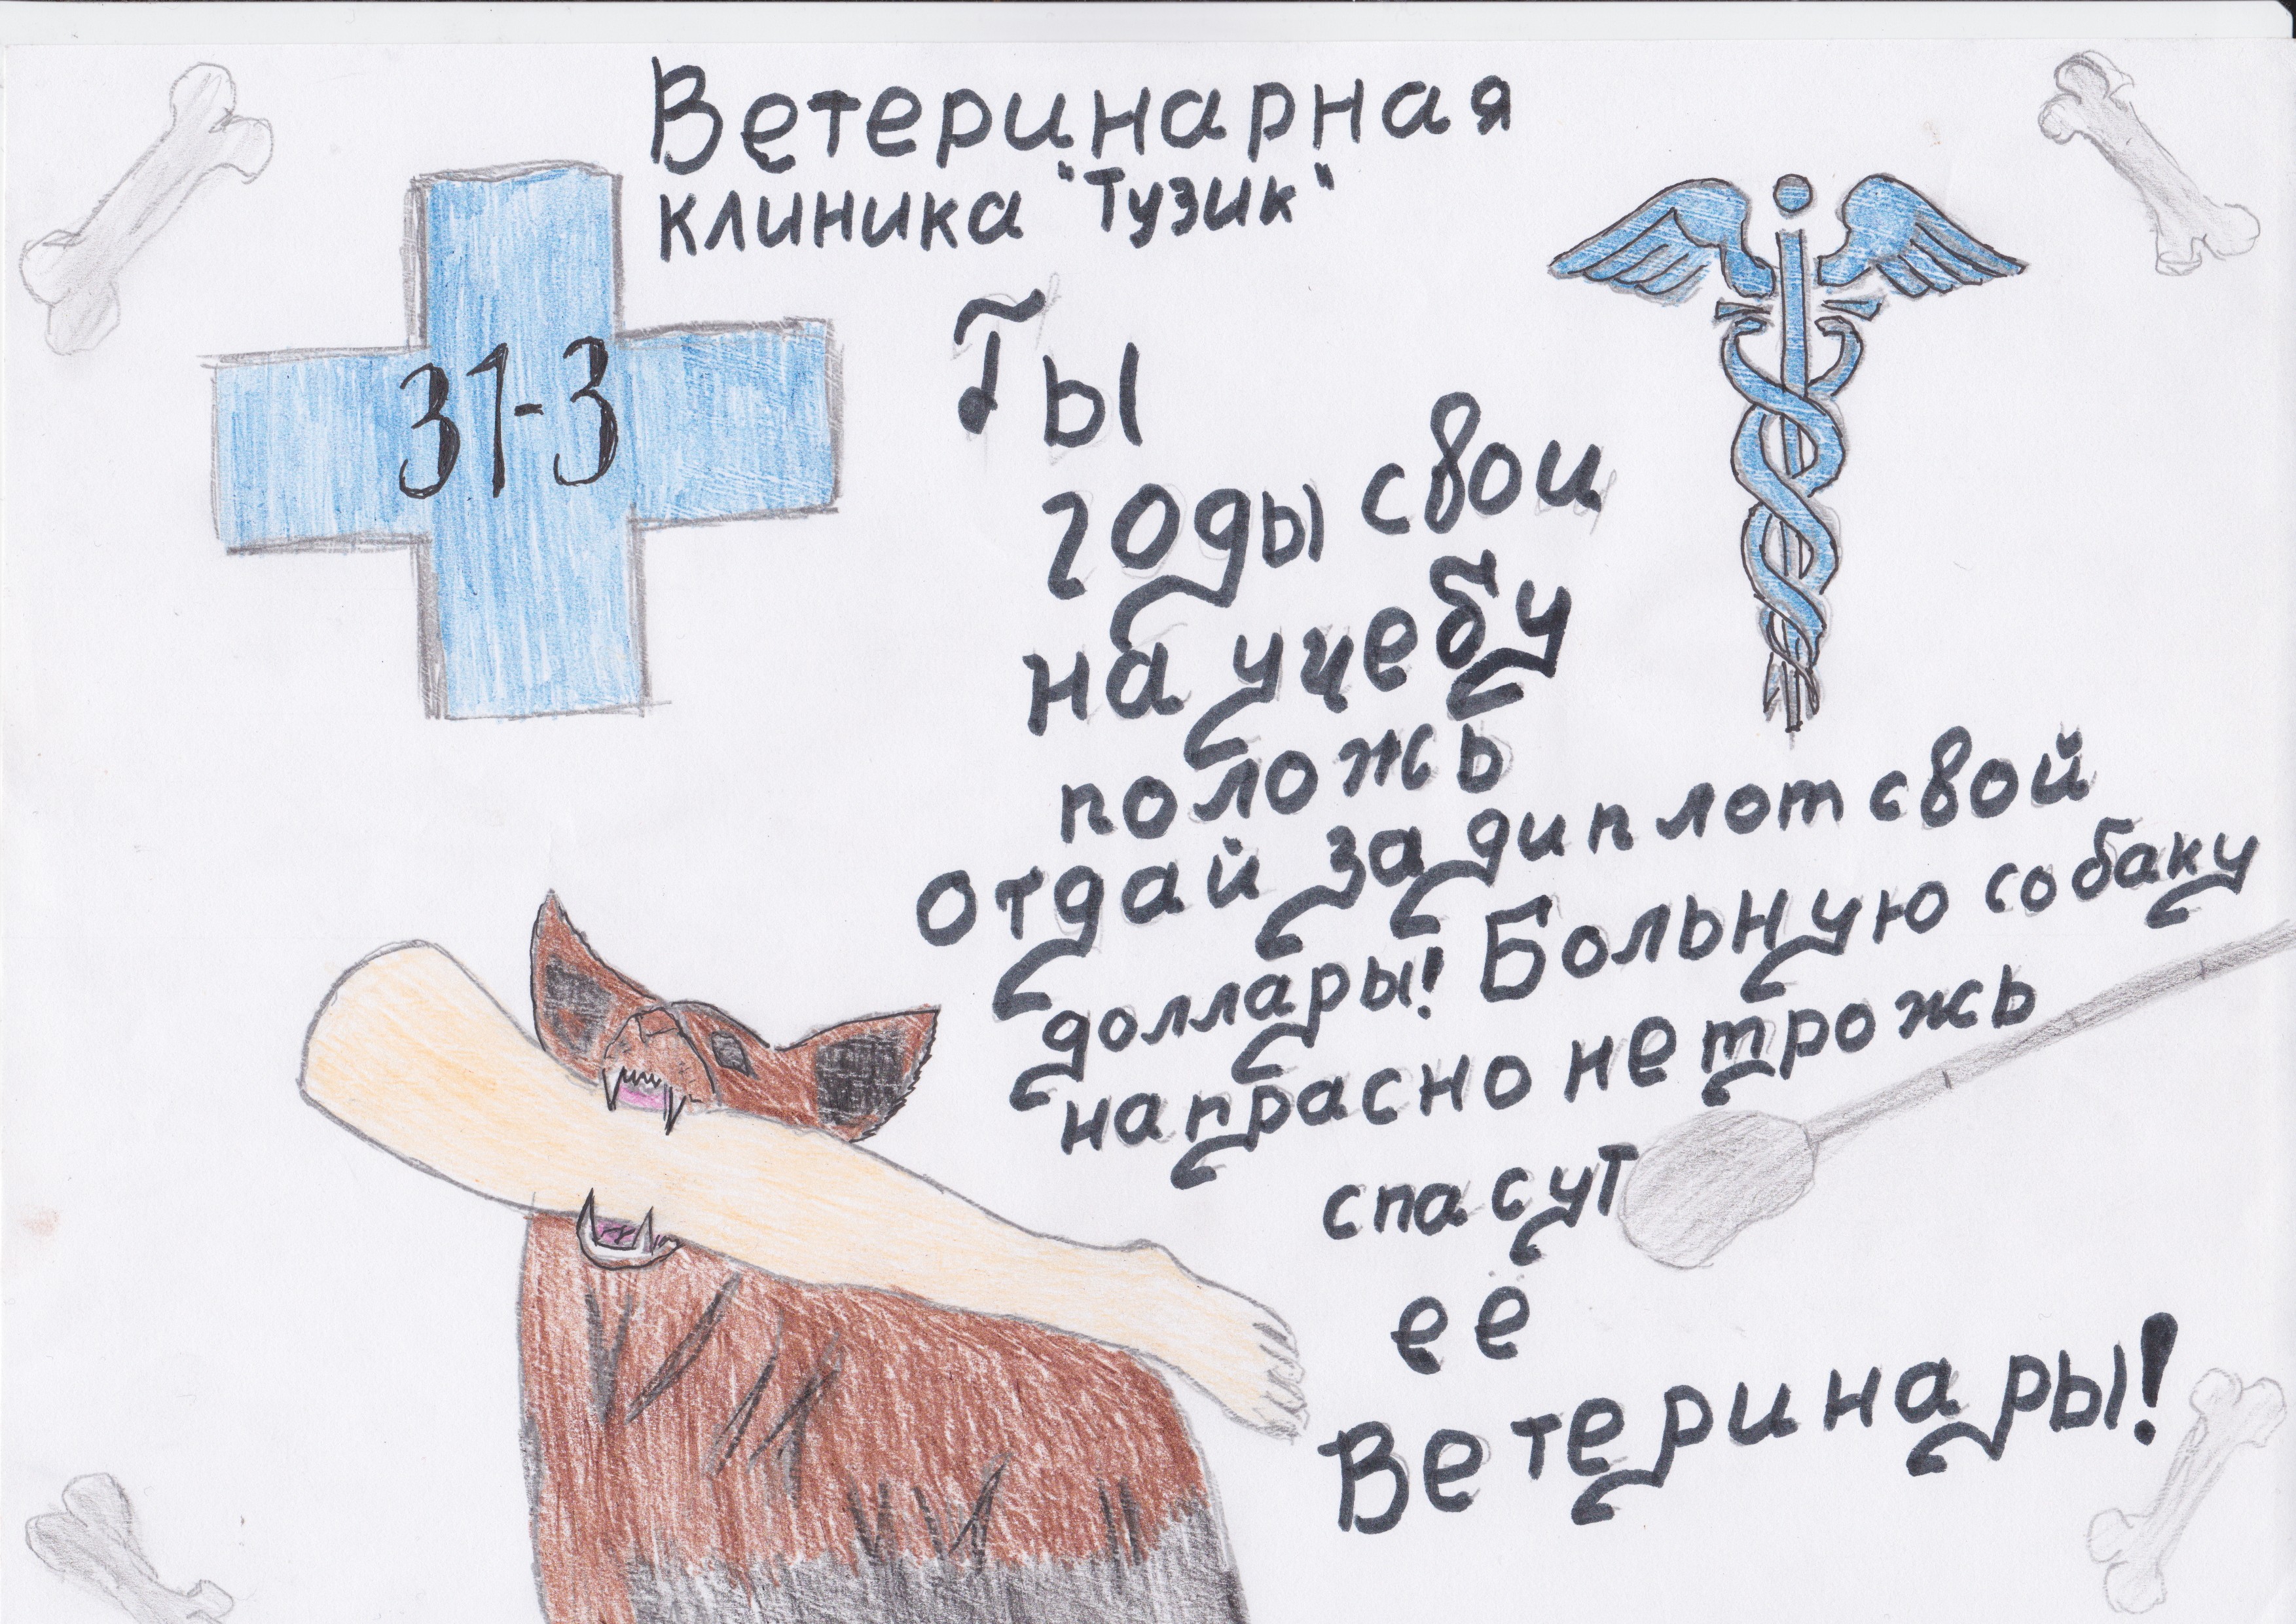 Ветеринарная
клиника "Тузик"
31-3
Ты
годы свои
на учебу
положь
отдай за диплом свой
доллары! Больную собаку
напрасно не трожь
спасут
её
Ветеринары!